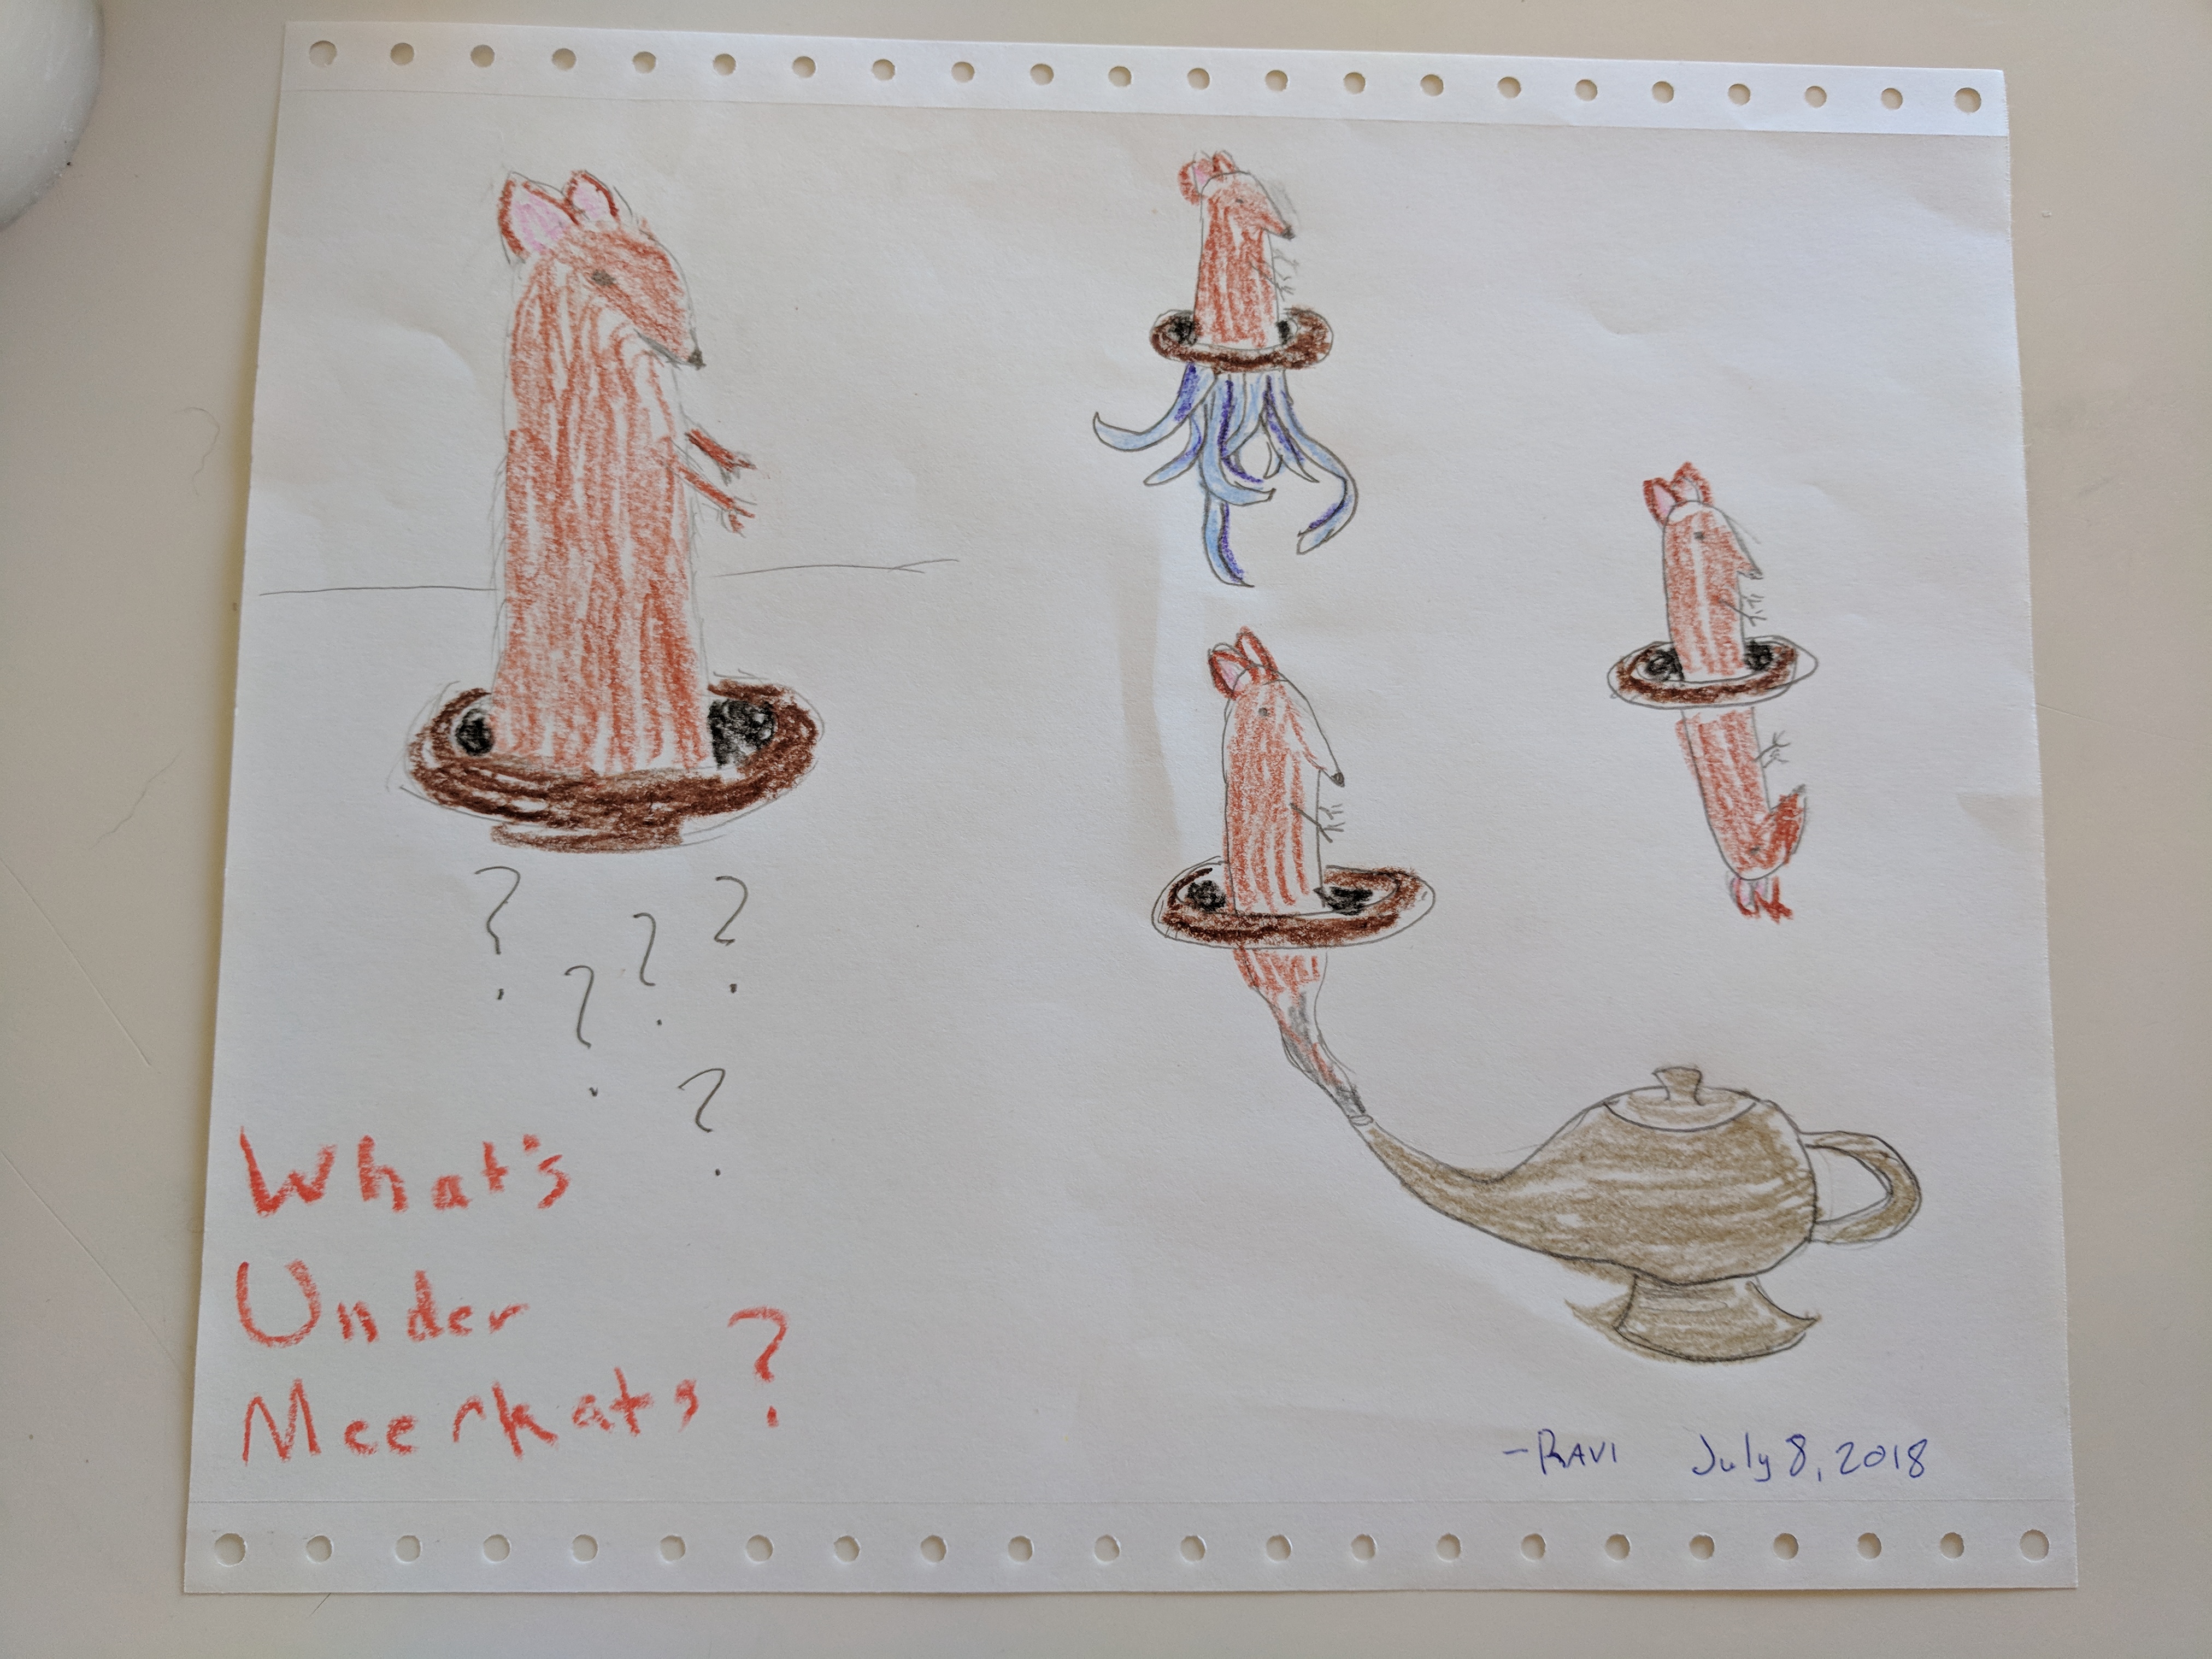 ? ? ? ? ?
What's
Under
Meerkats?
-RAVI July 8, 2018